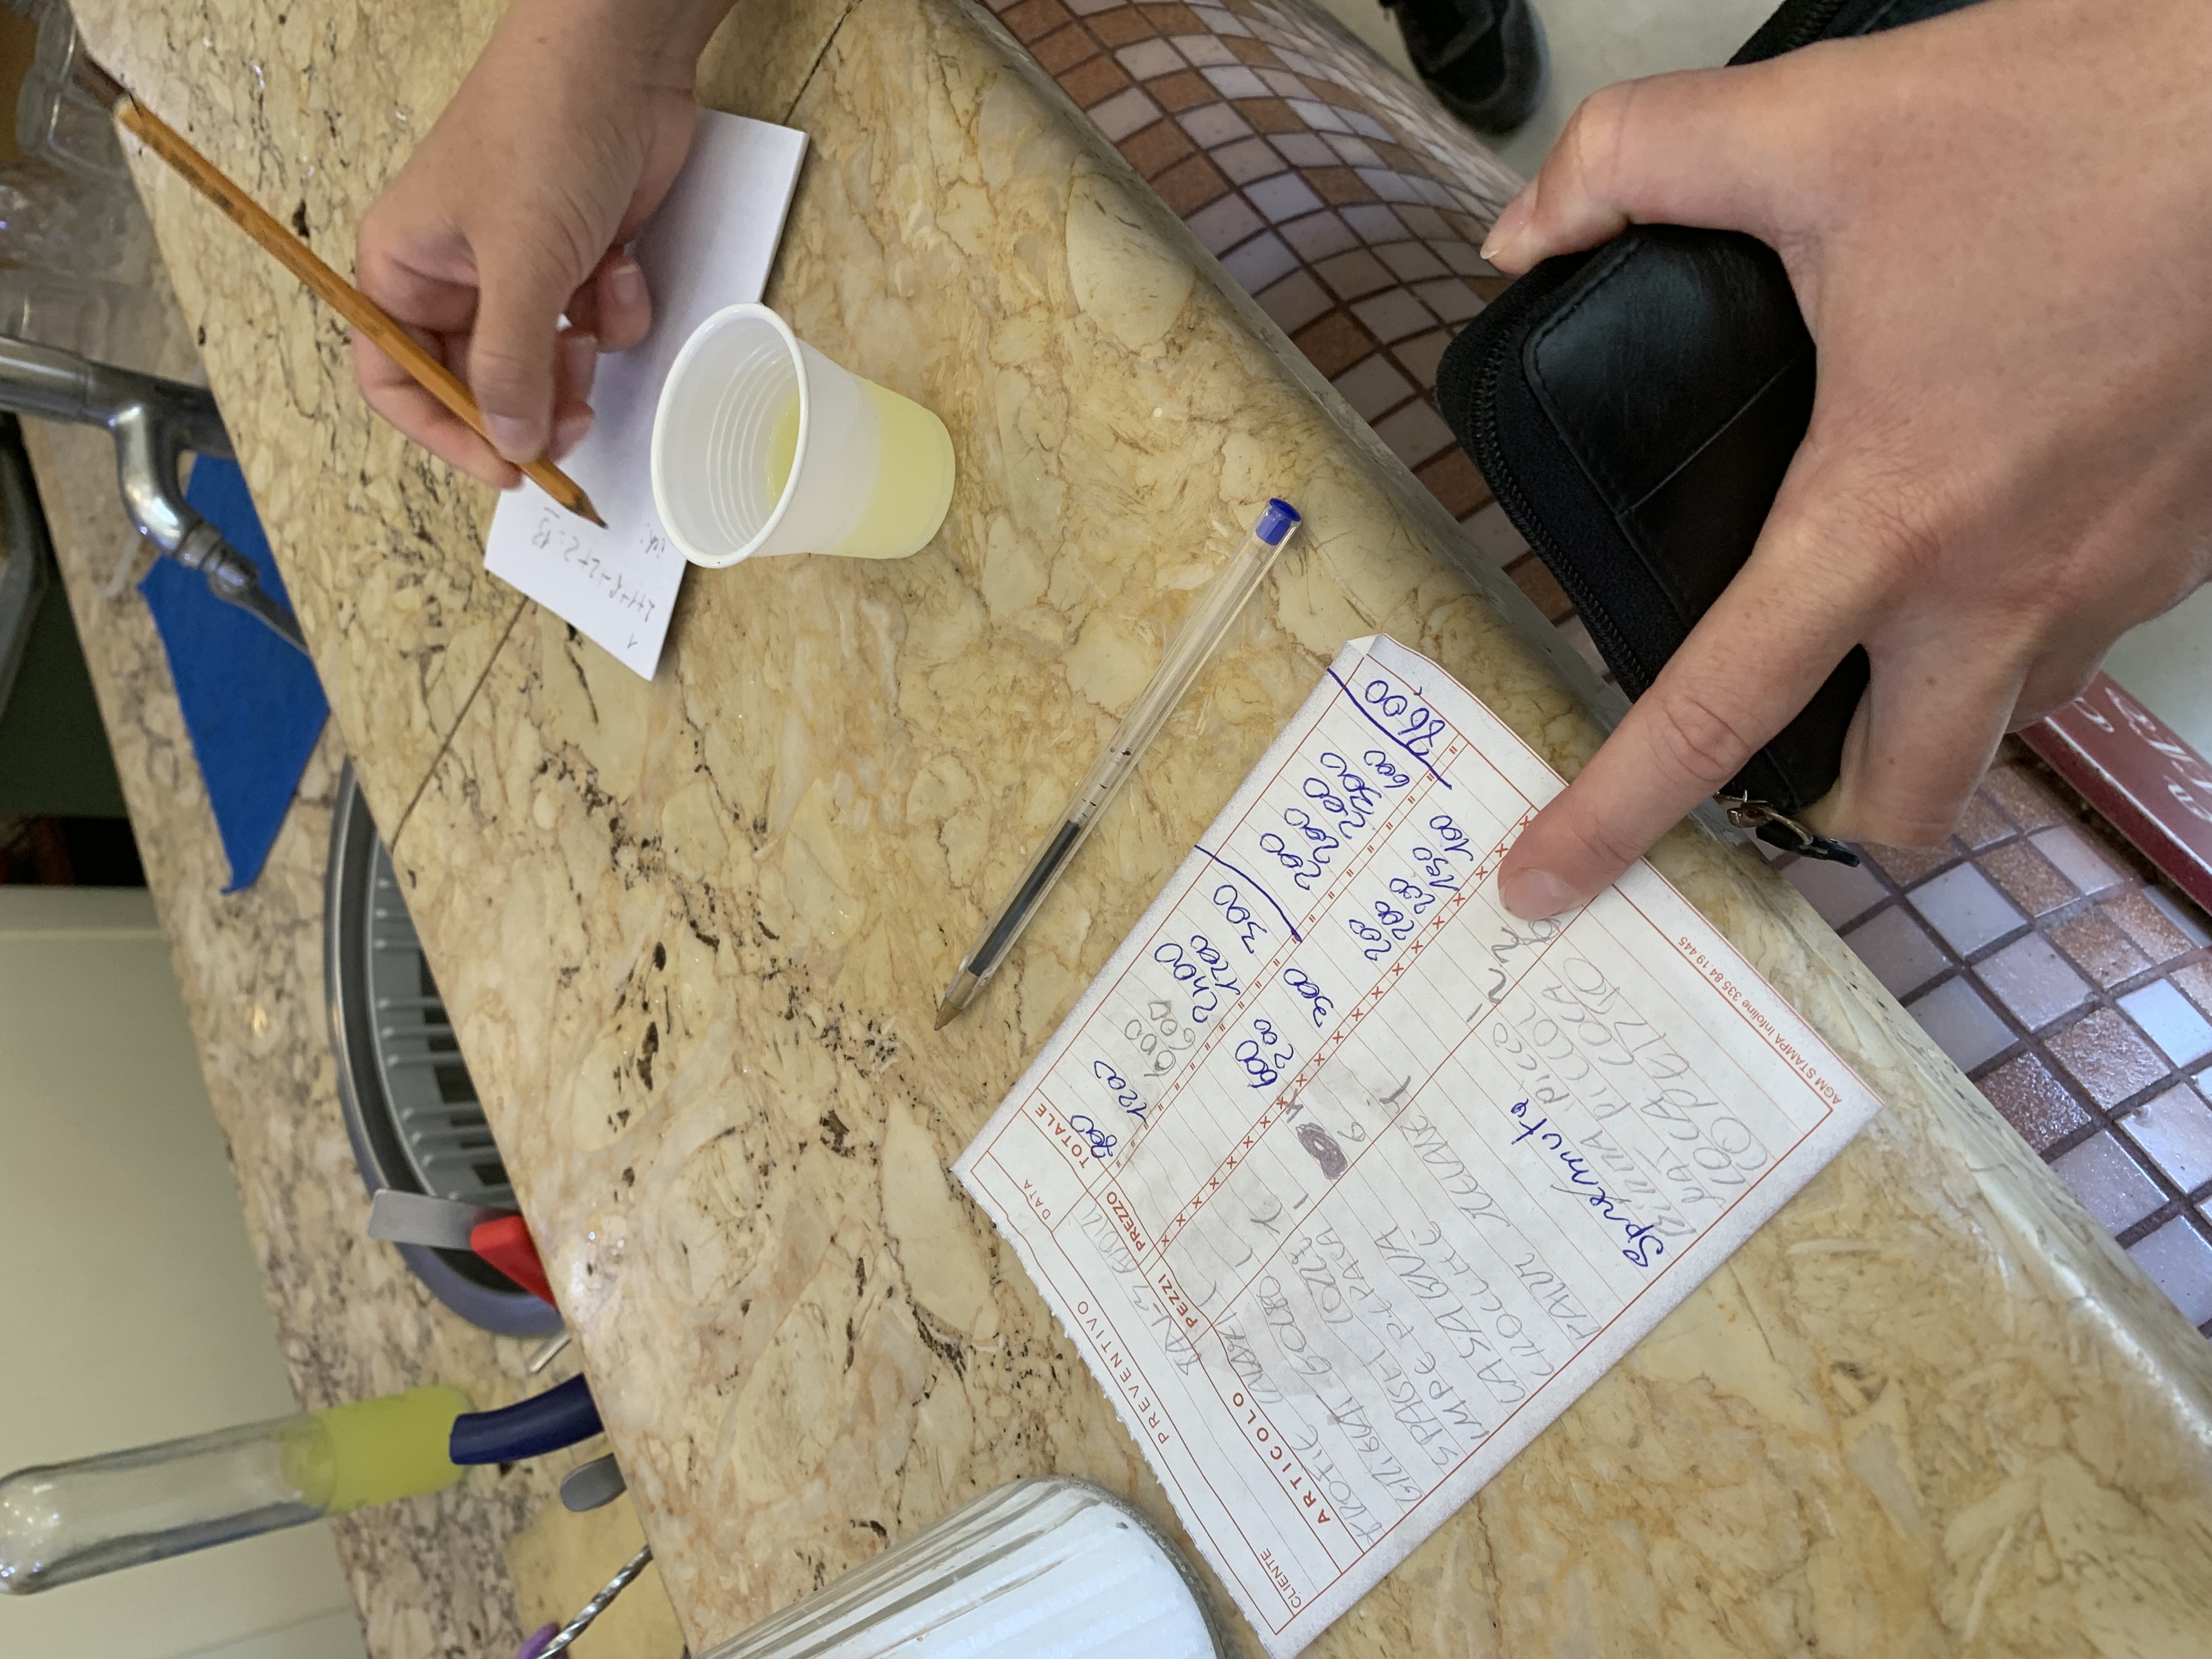 PREVENTIVO
DATA
CLIENTE
ARTICOLO PEZZI PREZZO TOTALE
TROFIE 1 800
1 1200
SPAGH COZZE 1 600
IMPE PEPATA 1 600
LASAGNA 600 2400
CROCCHE 6 200 1200
PATAT 1 300 300
Spremuta
BIRRA PICCO 1 200 200
NAT PICCOL 2 200 200
COCA COCA 2 200 200
COPERTO 6 150 300
100 600
8600
AGM STAMPA Infoline 335.84.19.445